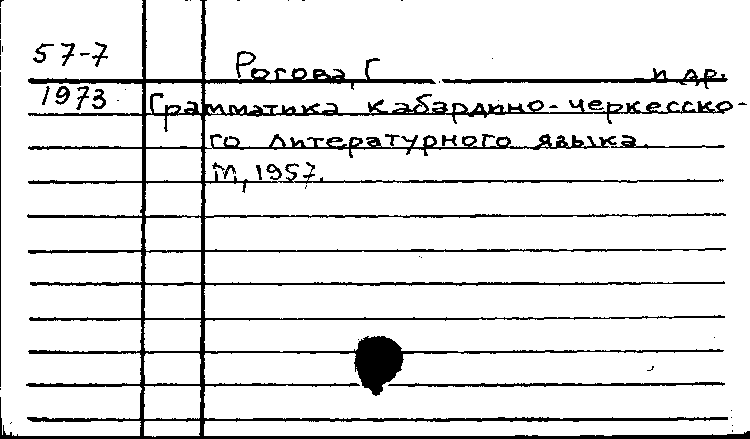 57-7 Рогова, Г и др.
1973 Грамматика кабардино-черкесско-
го литературного языка.
М, 1957.